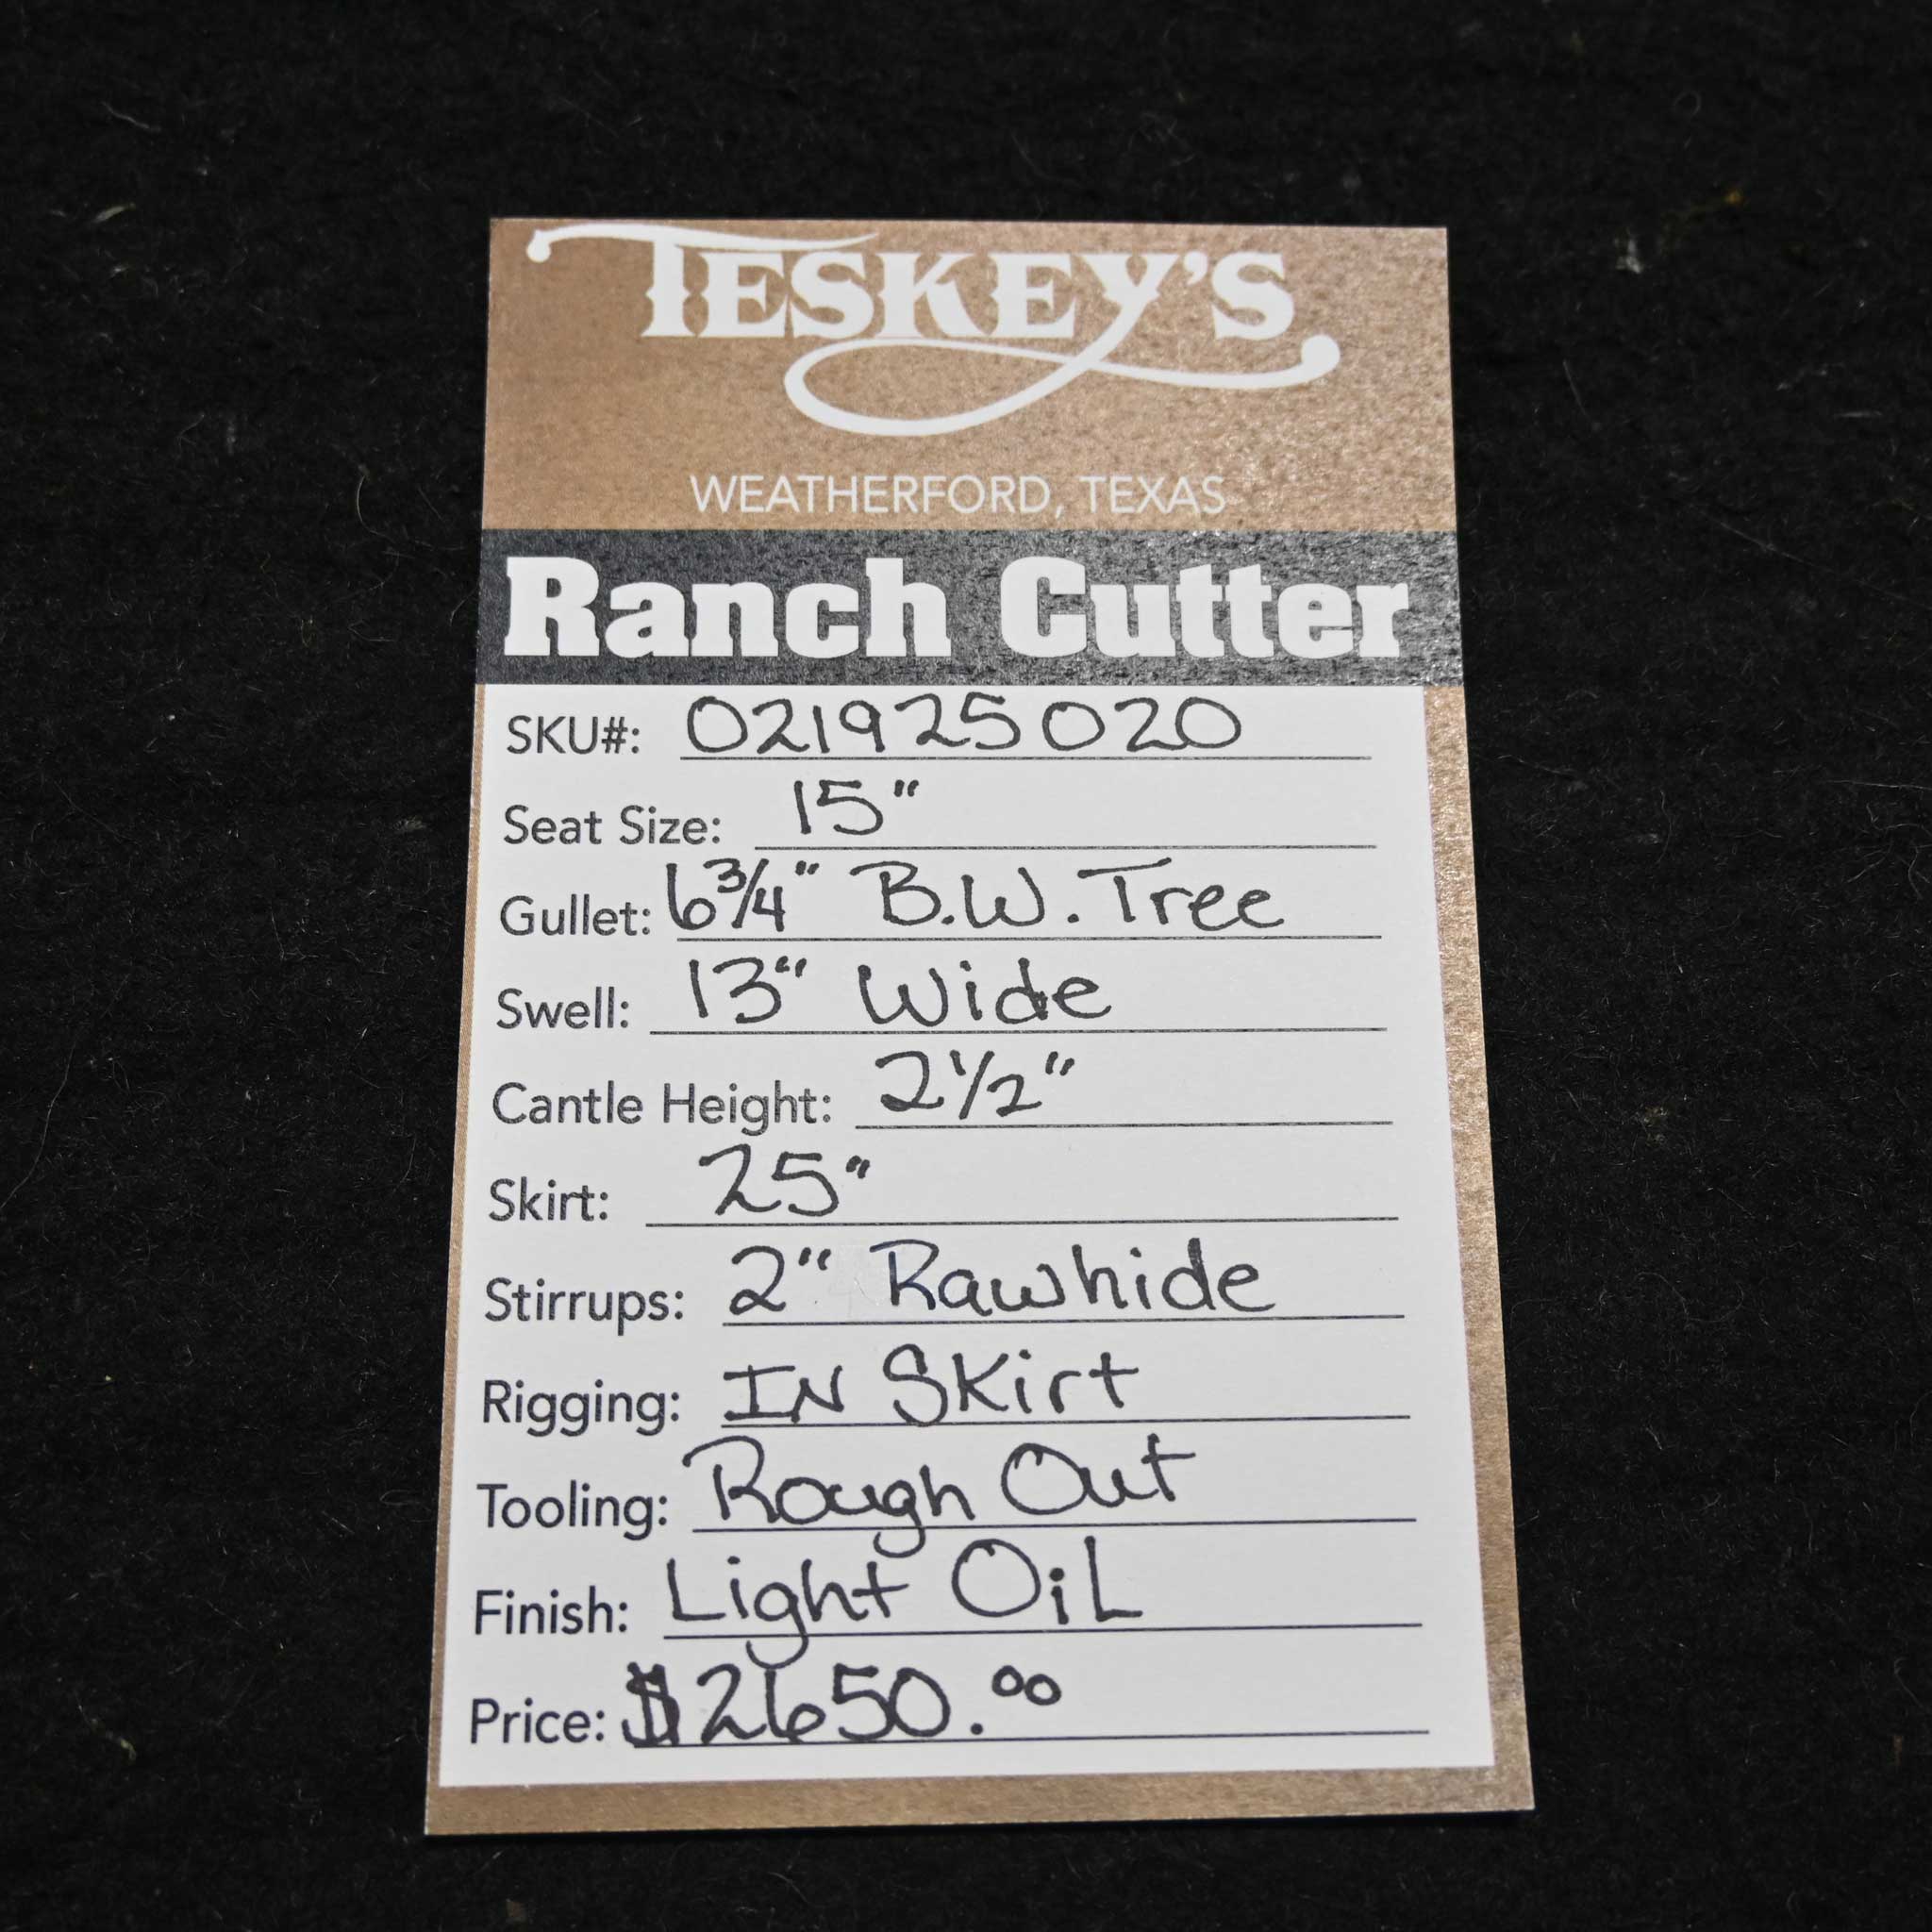 TESKEY'S
WEATHERFORD, TEXAS
Ranch Cutter
SKU#: 021925020
Seat Size: 15"
Gullet: 6 3/4" B.W. Tree
Swell: 13" Wide
Cantle Height: 2 1/2"
Skirt: 25"
Stirrups: 2" Rawhide
Rigging: IN SKirt
Tooling: Rough Out
Finish: Light OiL
Price: $2650.00